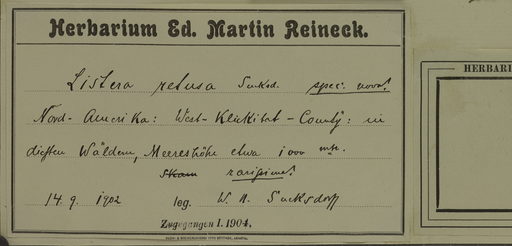 Herbarium Ed. Martin Reineck.
Listera retusa Suksd. spec. nova!
Nord-Amerika: West-Klickitat-County: in
dichten Wäldern, Meereshöhe etwa 1000 mtr.
rarissime!
14. 9. 1902 leg. W. N. Suksdorff
Zugegangen I. 1904.
HERBARI